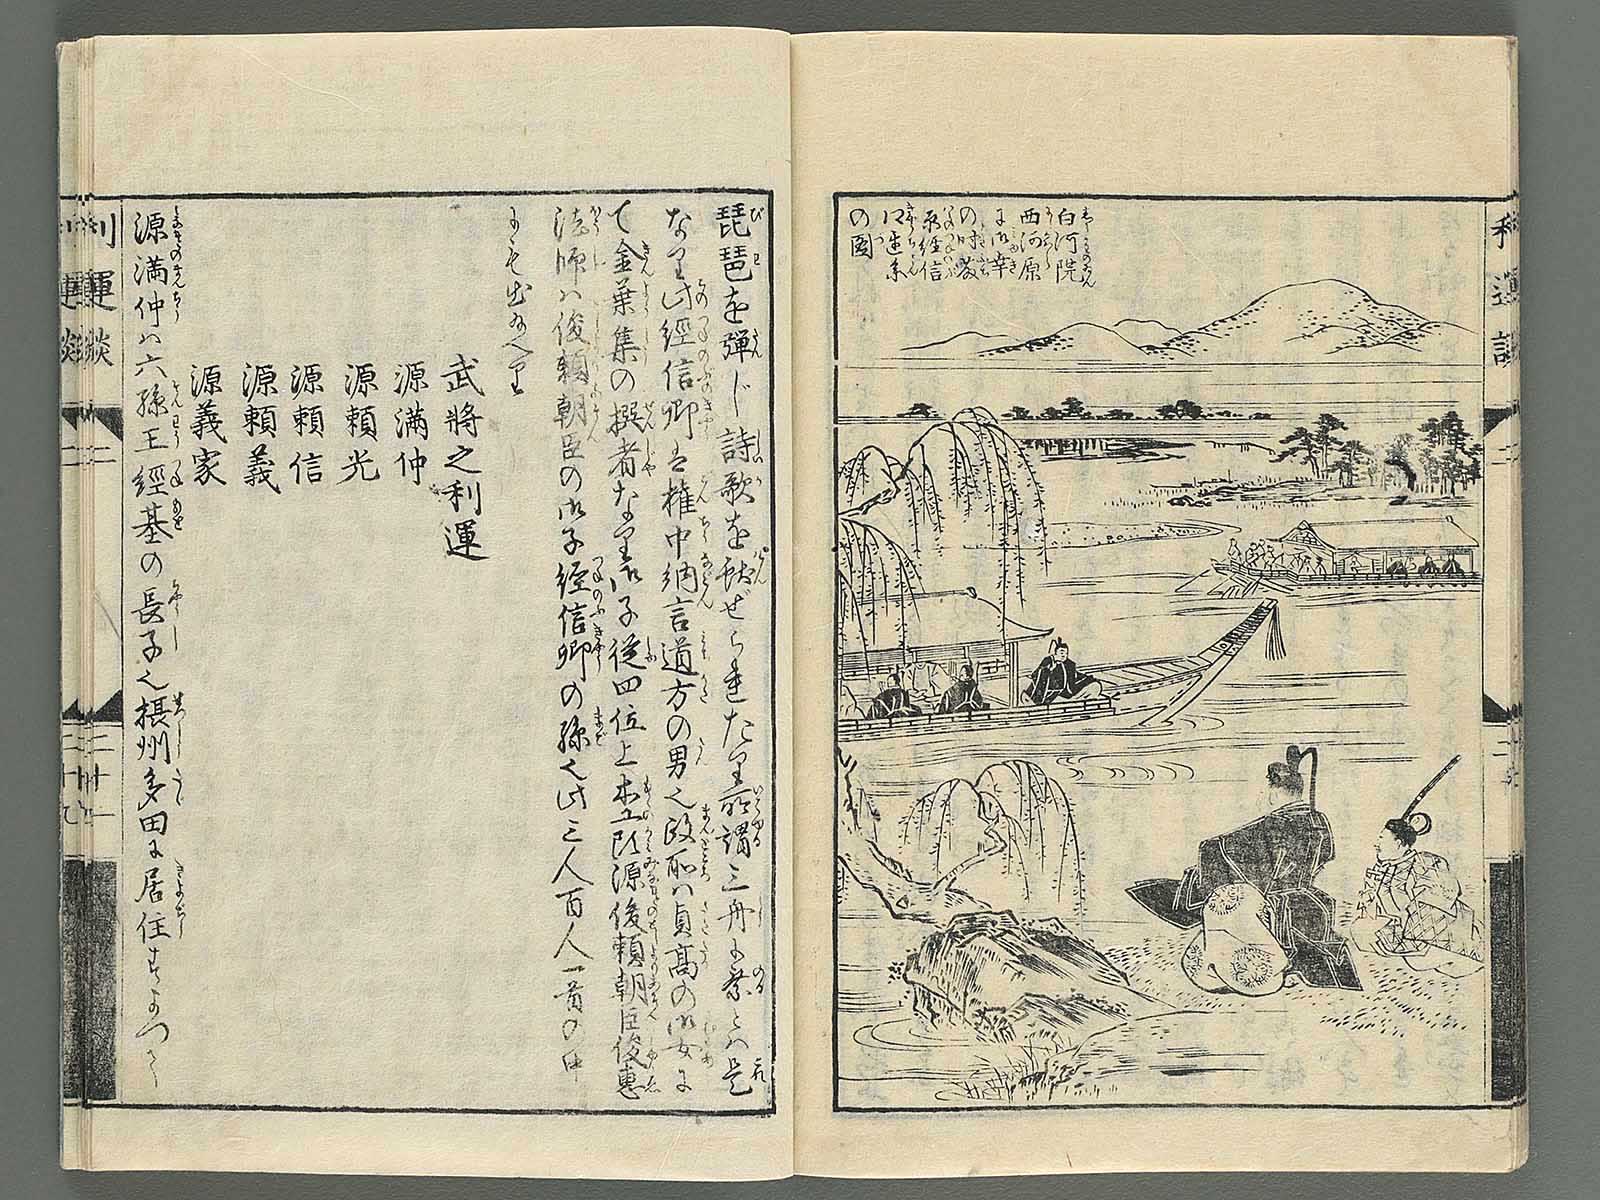 白河院
西河原
に御幸
の時源
経信
卿遅参
の図
琵琶を弾じ詩歌を献ぜられたり所謂三舟に乗とハ是
なり此經信卿は權中納言道方の男也政所ハ貞高の御女に
て金葉集の撰者なり御子從四位上木工頭源俊頼朝臣俊惠
法師ハ俊頼朝臣の御子經信卿の孫也此三人百人一首の中
にも出給へり
武將之利運
源満仲
源頼光
源頼信
源頼義
源義家
源満仲ハ六孫王經基の長子也摂州多田に居住すよつて
利運談
二